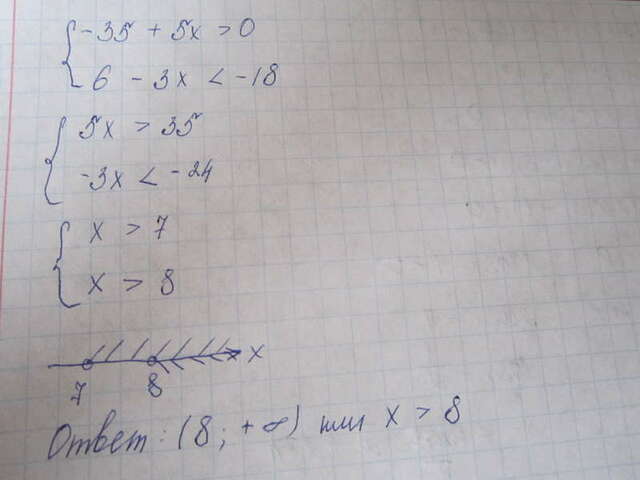 -35 + 5x > 0
6 - 3x < -18
5x > 35
-3x < -24
x > 7
x > 8
x
7 8
Ответ: (8; +∞) или x > 8